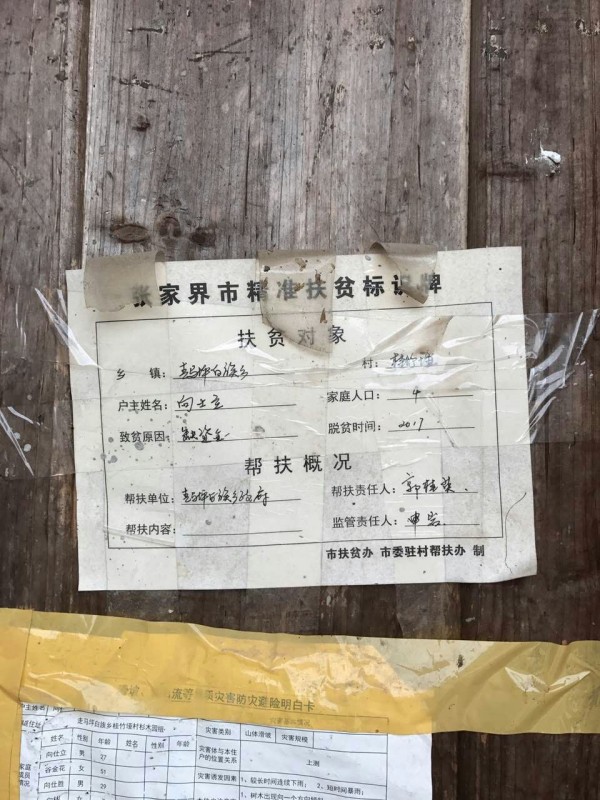 张家界市精准扶贫标识牌
扶贫对象
乡 镇：走马坪白族乡 村：桂竹垭
户主姓名：向士立 家庭人口：4
致贫原因：缺资金 脱贫时间：2017
帮扶概况
帮扶单位：走马坪白族乡政府 帮扶责任人：郭桂
帮扶内容： 监管责任人：申宏
市扶贫办 市委驻村帮扶办 制
流等 灾害防灾避险明白卡
户主姓名
走马坪白族乡桂竹垭村杉木园组
姓名 性别 年龄 姓名 性别 年龄 灾害类别 山体滑坡 灾害规模
向仕立 男 27 灾害体与本住户的位置关系 上测
谷金花 女 51
向仕胜 男 29 灾害诱发因素 1、较长时间连续下雨； 2、短时暴雨；
家庭成员情况
1、树木出现向一个方向倾斜